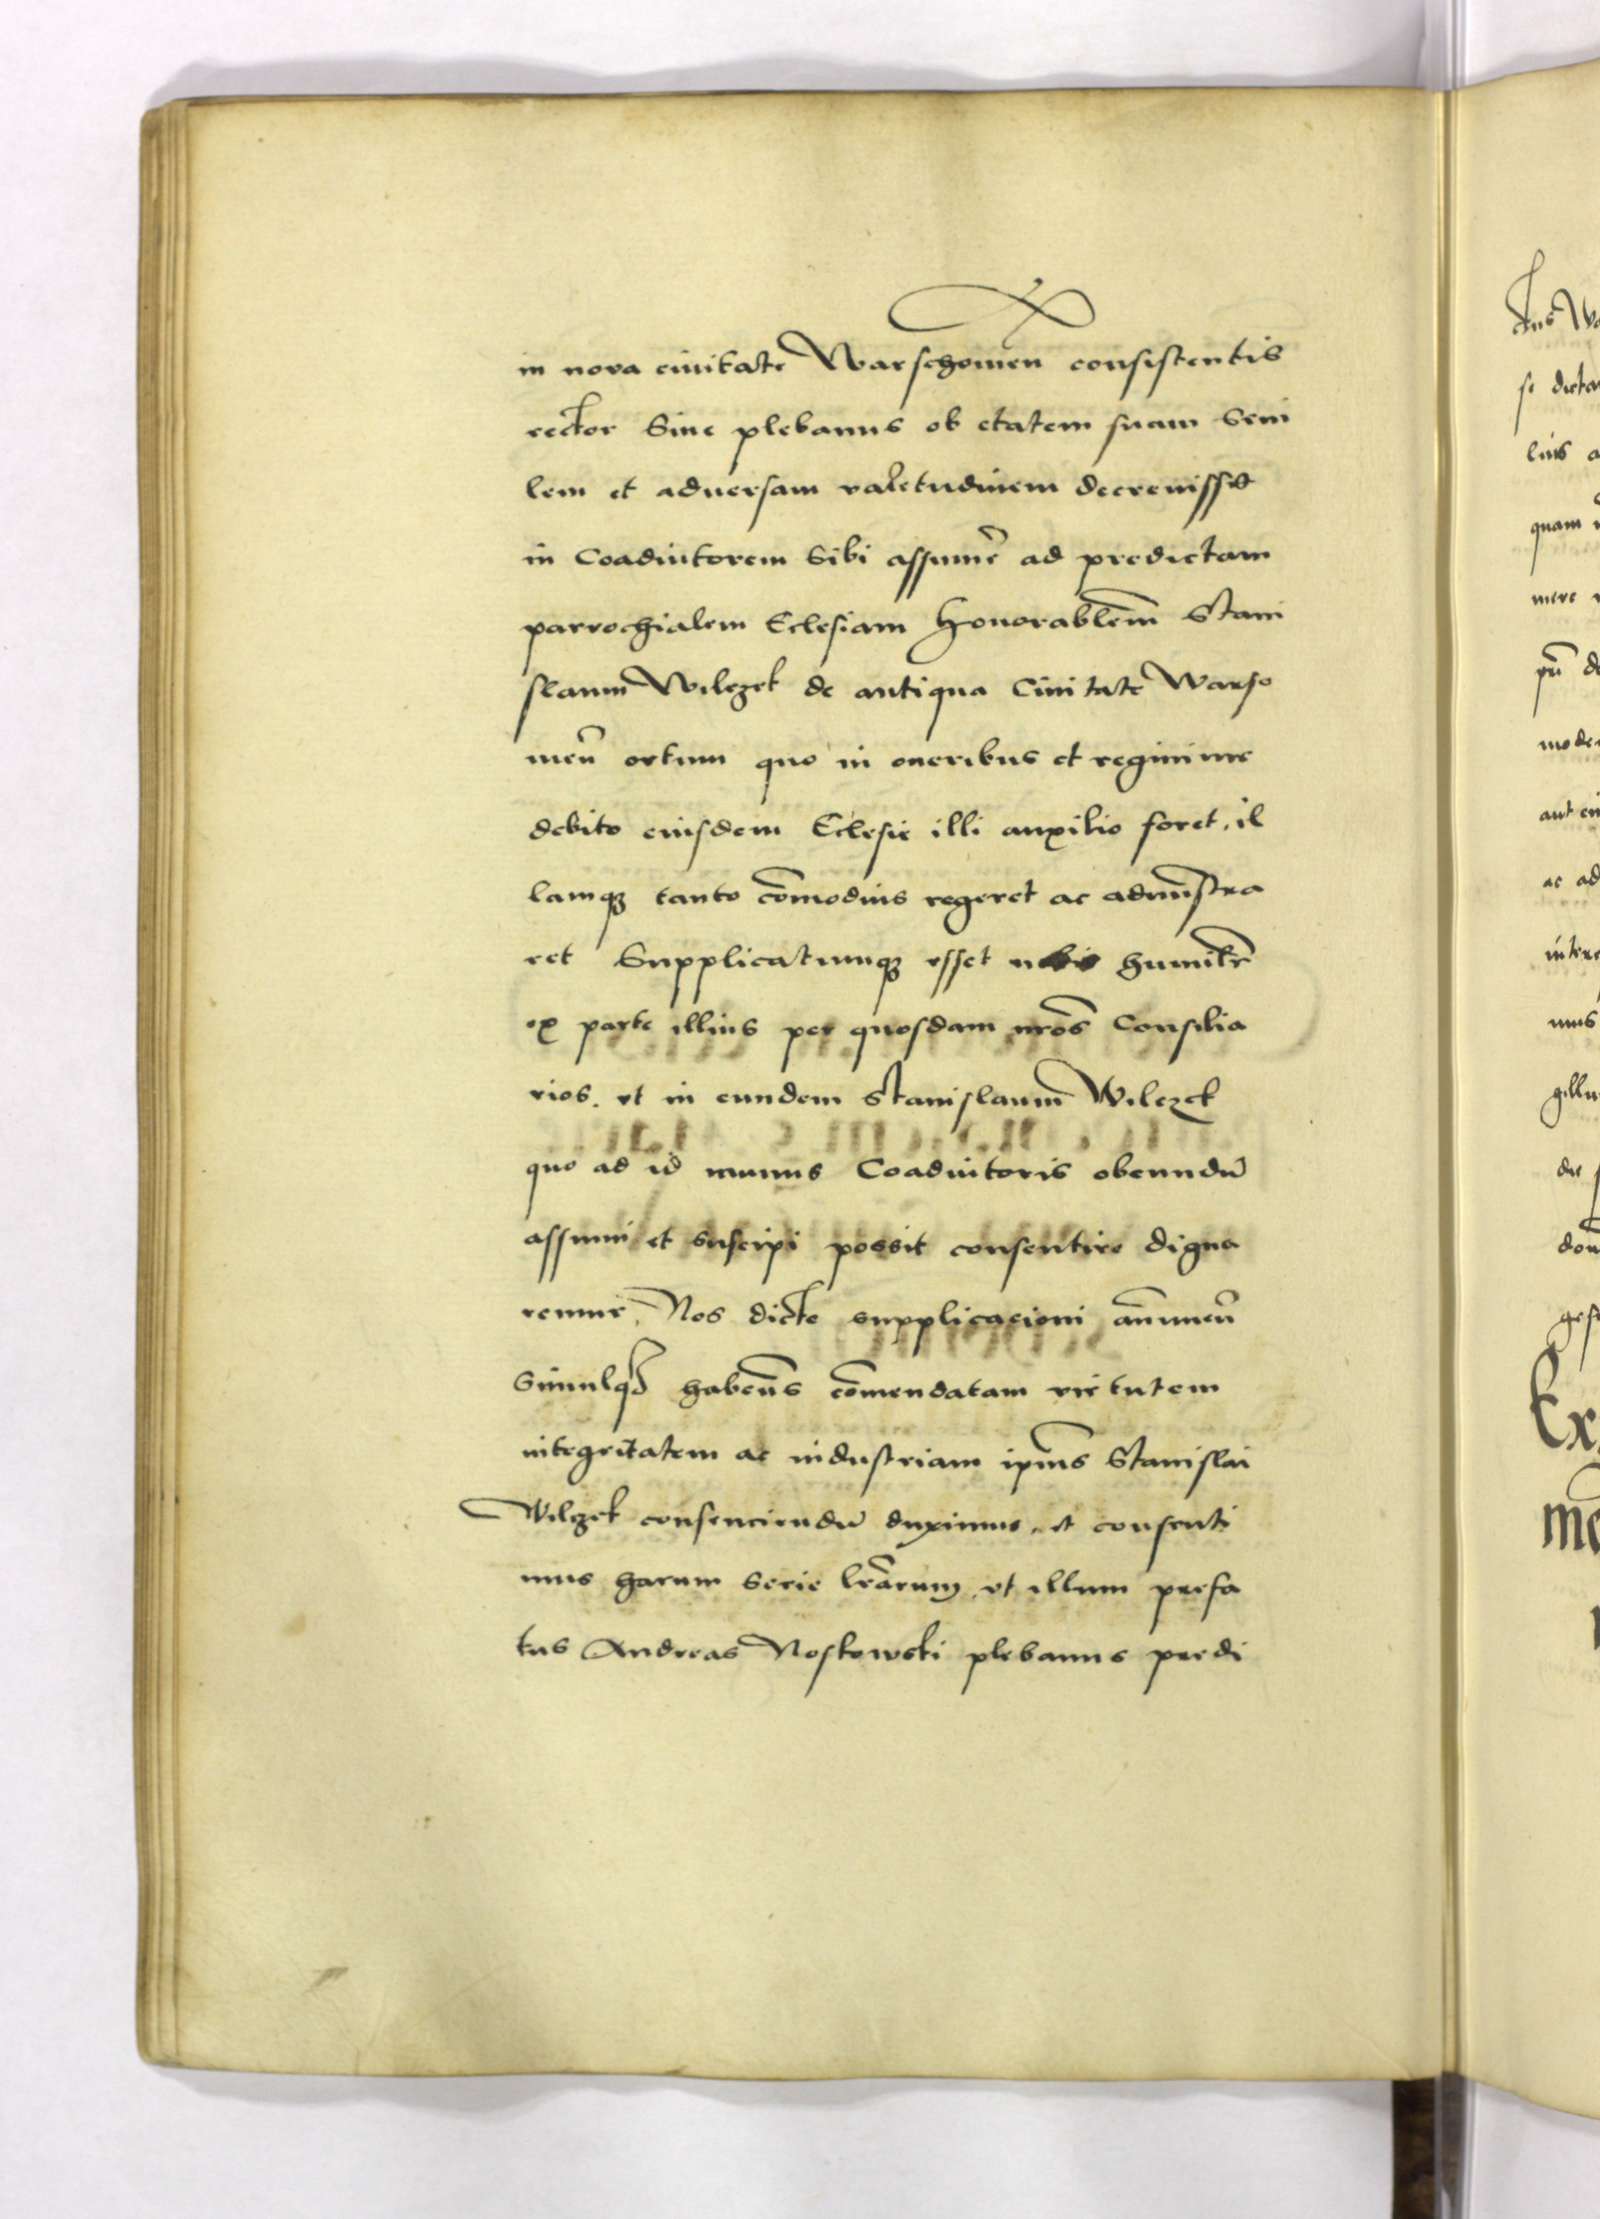 in nova ciuitate Warschouien consistentis
rector Siue plebanus ob etatem suam Seni
lem et aduersam valetudinem decreuisset
in Coadiutorem Sibi assumē ad predictam
parrochialem Eclesiam honorablēm Stani
slaum Wilczek de antiqua Ciuitate Warso
uien̄ ortum quo in oneribus et regimine
debito eiusdem Eclesie illi auxilio foret, il
lamqꝫ tanto cōmodius regeret ac admīstra
ret Supplicatumqꝫ esset nobis humilr̄
ex parte illius per quosdam nr̄os Consilia
rios. vt in eundem Stanislaum Wilczek
quo ad id munus Coadiutoris obeundū
assumi et suscipi possit consentire digna
remur, Nos dicte supplicacioni an̄nuen̄
Simulqꝫ haben̄s cōmendatam virtutem
integritatem ac industriam ipīus Stanislai
Wilczek consenciendū duximus, et consenti
mus harum serie lr̄arum, vt illum prefa
tus Andreas Noskowski plebanus predi
ctus Wa
se dicta
lius a
quam
mere
pn̄
moder
aut
ac ad
intere
mus
gillu
die
don
gesi
Ex